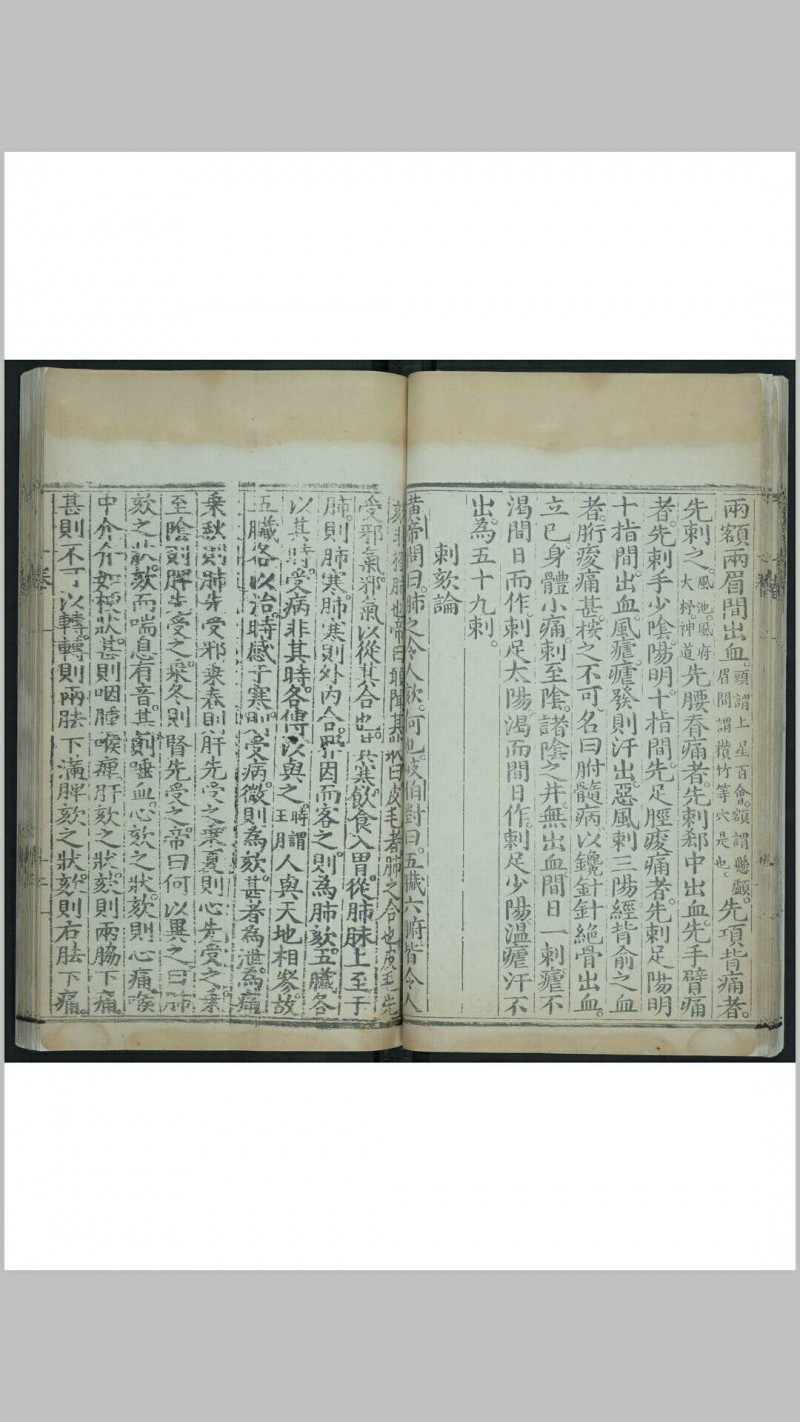 兩額兩眉間出血。頭謂上星百會。額謂懸顱。眉間謂攢竹等穴是也。先項背痛者。
先刺之。風池。風府大杼。神道先腰脊痛者。先刺郄中出血。先手臂痛
者。先刺手少陰陽明十指間。先足脛痠痛者。先刺足陽明
十指間。出血。風瘧。瘧發則汗出。惡風刺三陽經背俞之血
者。䯒痠痛甚。按之不可。名曰胕髓病。以鑱針針絶骨出血。
立已。身體小痛。刺至陰。諸陰之井。無出血。間日一刺。瘧不
渴間日而作。刺足太陽。渴而間日作。刺足少陽。溫瘧汗不
出。為五十九刺。
刺欬論
黃帝問曰。肺之令人欬。何也。岐伯對曰。五臟六腑皆令人
欬非獨肺也帝曰願聞其狀曰皮毛者肺之合也皮毛先
受邪氣。邪氣以從其合也。其寒飲食入胃。從肺脉上至于
肺。則肺寒。肺寒則外內合。邪因而客之。則為肺欬。五臟各
以其時。受病非其時。各傳以與之。時謂王月人與天地相參。故
五臟各以治。時感于寒則受病。微則為欬。甚者為泄。為痛
乗秋則肺先受邪乗春則肝先受之乗夏則心先受之。乗
至陰則脾先受之乗冬則腎先受之。帝曰何以異之曰肺
欬之狀。欬而喘息有音。甚則唾血。心欬之狀。欬則心痛。喉
中介介如梗狀。甚則咽腫喉痺。肝欬之狀。欬則兩脇下痛。
甚則不可以轉。轉則兩胠下滿。脾欬之狀。欬則右胠下痛。